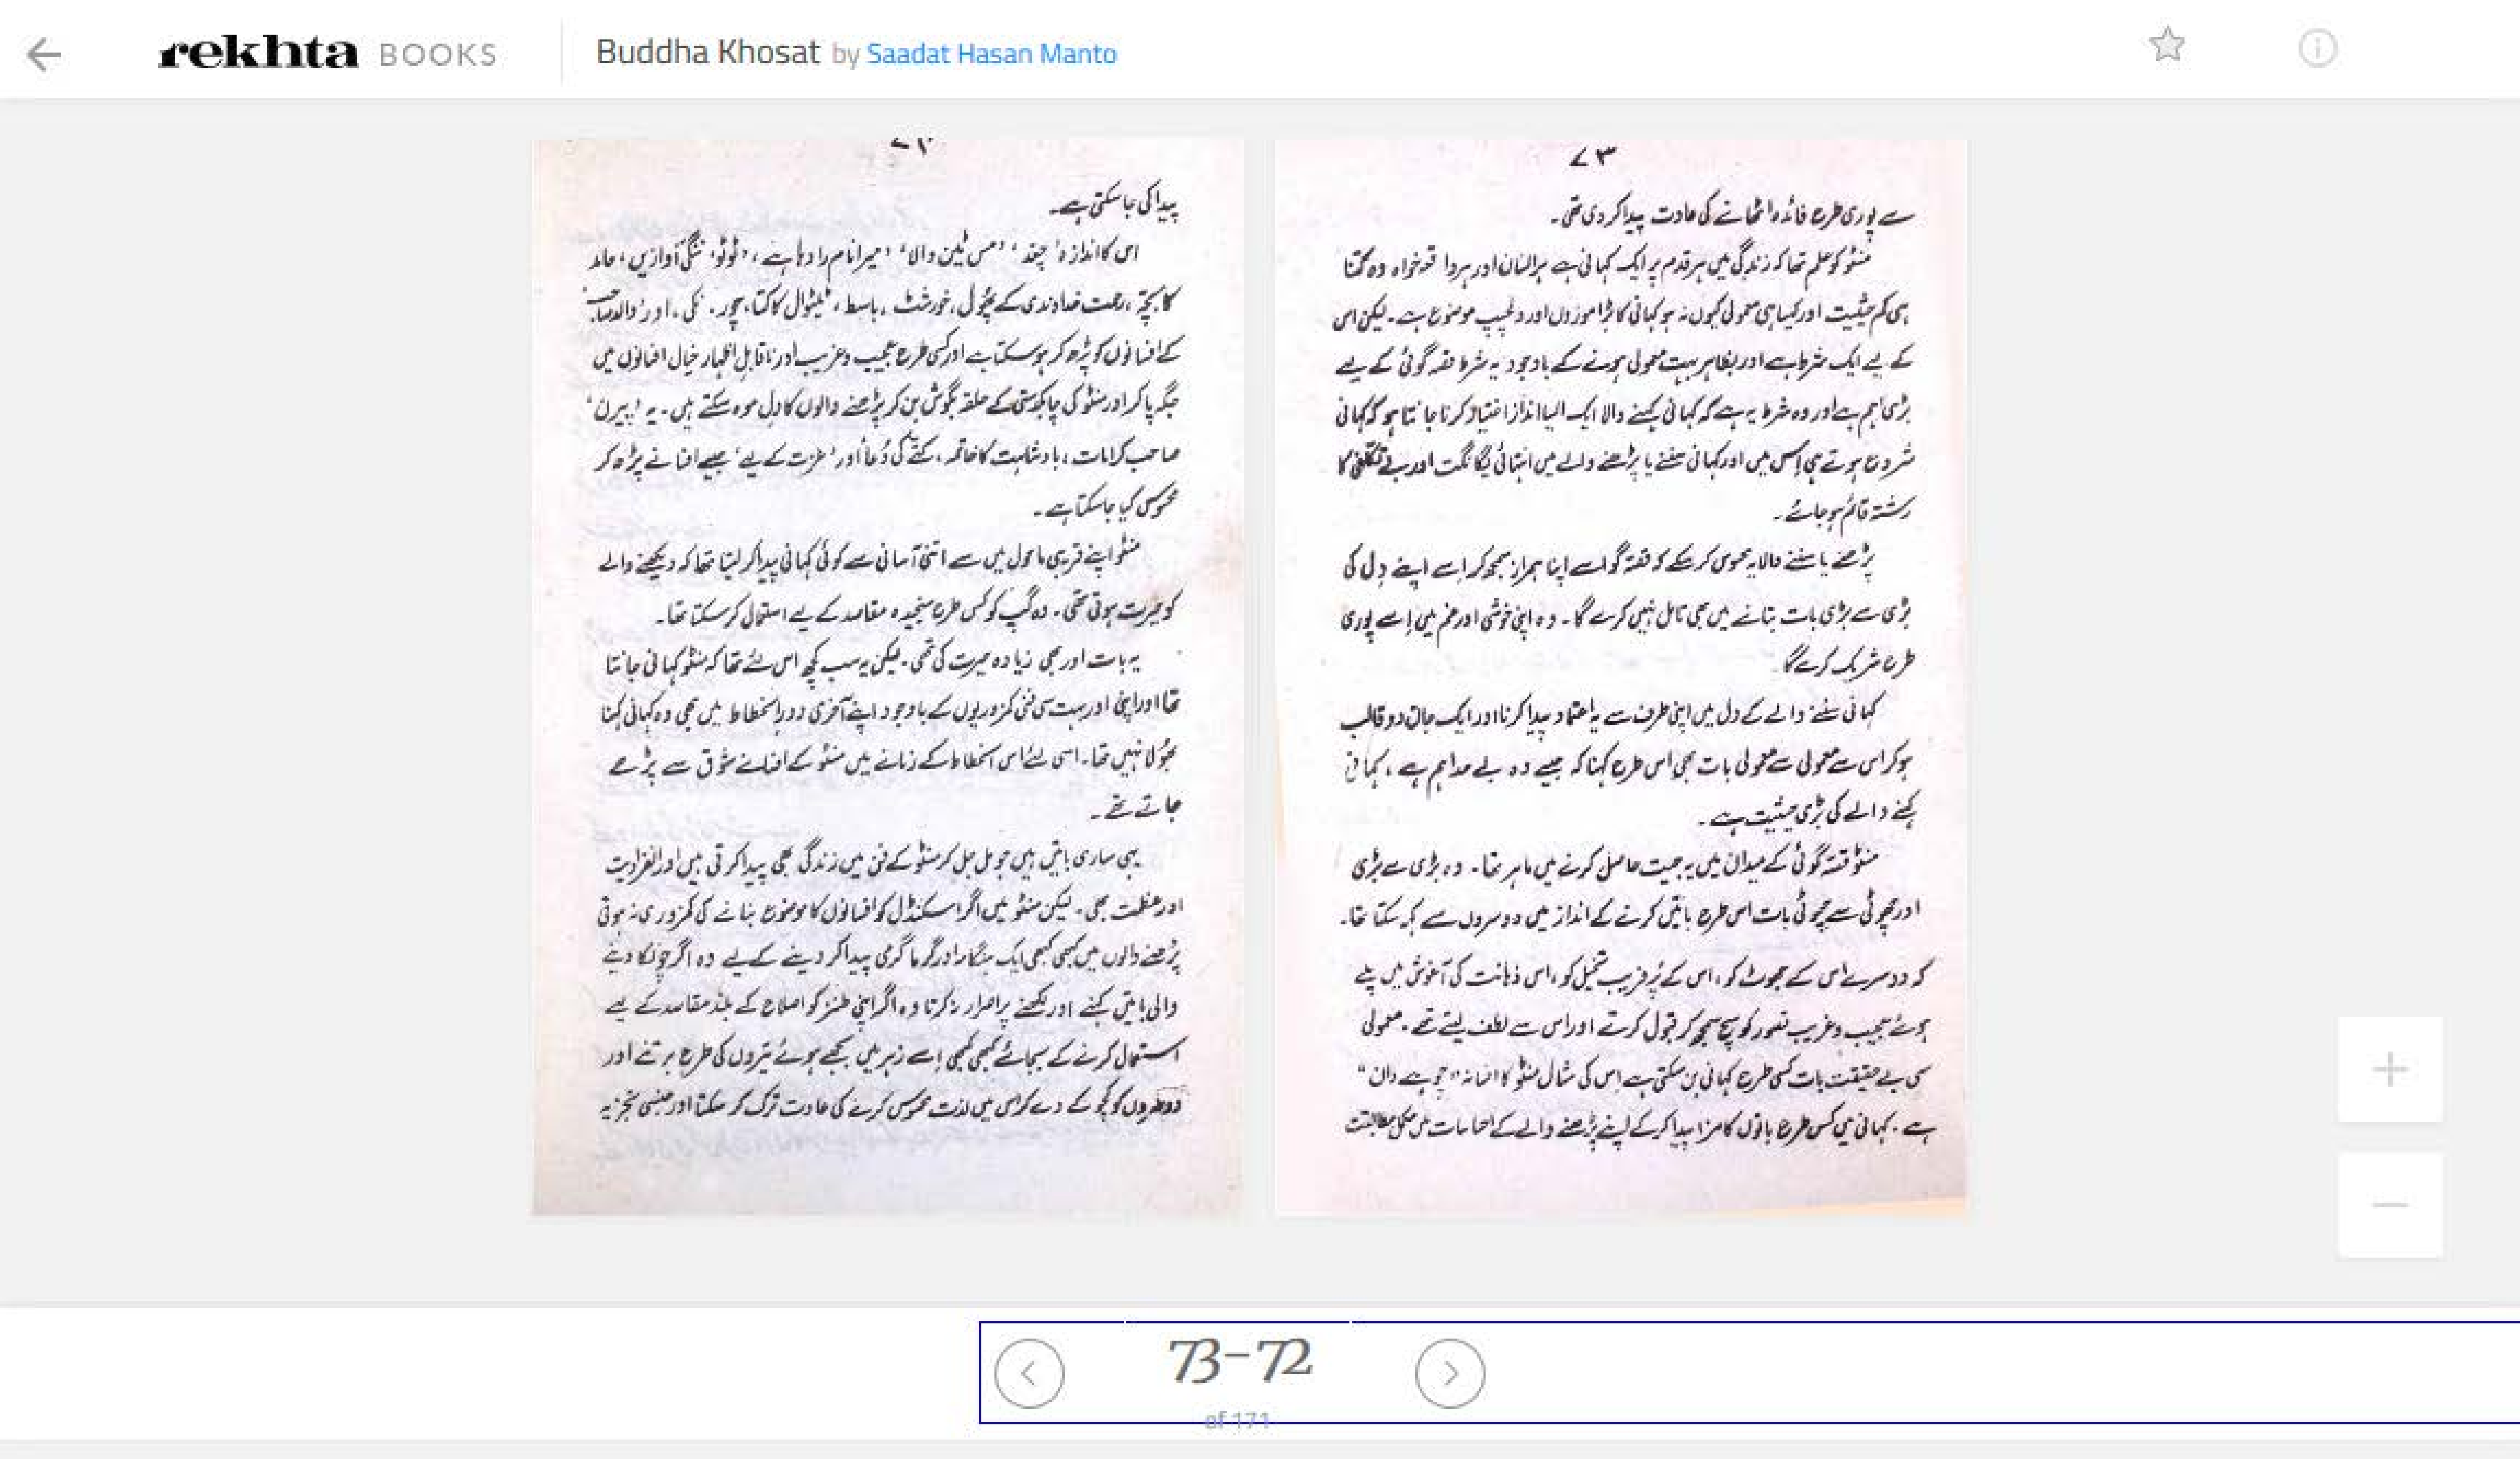 rekhta BOOKS
Buddha Khosat by Saadat Hasan Manto
۷۳
سے پوری طرح فائدہ اٹھانے کی عادت پیدا کر دی تھی۔
منٹو کو علم تھا کہ زندگی میں ہر قدم پر ایک کہانی ہے ہر انسان اور ہر واقعہ خواہ وہ کتنا
ہی کم حیثیت اور کیسا ہی معمولی کیوں نہ ہو کہانی کا بڑا موزوں اور دلچسپ موضوع ہے۔ لیکن اس
کے لیے ایک شرط ہے اور بظاہر بہت معمولی ہونے کے باوجود یہ شرط قصہ گوئی کے لیے
بڑی اہم ہے اور وہ شرط یہ ہے کہ کہانی کہنے والا ایک ایسا انداز اختیار کرنا جانتا ہو کہ کہانی
شروع ہوتے ہی اس میں اور کہانی سننے یا پڑھنے والے میں انتہائی یگانگت اور بے تکلفی کا
رشتہ قائم ہو جائے۔
پڑھنے یا سننے والا یہ محسوس کر سکے کہ قصہ گو اسے اپنا ہمراز سمجھ کر اسے اپنے دل کی
بڑی سے بڑی بات بتانے میں بھی تامل نہیں کرے گا۔ وہ اپنی خوشی اور غم میں اسے پوری
طرح شریک کرے گا
کہانی سننے والے کے دل میں اپنی طرف سے یہ اعتماد پیدا کرنا اور ایک جان دو قالب
ہو کر اس سے معمولی سے معمولی بات بھی اس طرح کہنا کہ جیسے وہ بے حد اہم ہے، کہانی
کہنے والے کی بڑی حیثیت ہے۔
منٹو قصہ گوئی کے میدان میں یہ جیت حاصل کرنے میں ماہر تھا۔ وہ بڑی سے بڑی
اور چھوٹی سے چھوٹی بات اس طرح باتیں کرنے کے انداز میں دوسروں سے کہہ سکتا تھا۔
کہ دوسرے اس کے جھوٹ کو، اس کے پُر فریب تخیل کو، اس ذہانت کی آغوش میں پلے
ہوئے عجیب و غریب تصور کو سچ سمجھ کر قبول کرتے اور اس سے لطف لیتے تھے۔ معمولی
سی بے حقیقت بات کسی طرح کہانی بن سکتی ہے اس کی مثال منٹو کا افسانہ "چوہے دان"
ہے۔ کہانی میں کس طرح باتوں کا مزا پیدا کر کے اپنے پڑھنے والے کے احساسات میں مکمل مطابقت
پیدا کی جا سکتی ہے۔
اس کا اندازہ 'چغد'، 'مس ٹین والا'، 'میرا نام رادھا ہے'، 'ٹوٹو' ننگی آوازیں، حامد
کا بچہ، رحمت خداوندی کے پھول، خورشٹ، باسط، ٹیٹوال کا کتا، چور، نکی، اور 'والد صاحب'
کے افسانوں کو پڑھ کر ہو سکتا ہے اور کسی طرح عجیب و غریب اور ناقابلِ اظہار خیال افسانوں میں
جگہ پا کر اور منٹو کی چابکدستی کے حلقہ بگوش بن کر پڑھنے والوں کا دل موہ سکتے ہیں۔ یہ 'پیرن'
صاحب کرامات، بادشاہت کا خاتمہ، کتے کی دُعا اور 'عزت کے لیے' جیسے افسانے پڑھ کر
محسوس کیا جا سکتا ہے۔
منٹو اپنے قریبی ماحول میں سے اتنی آسانی سے کوئی کہانی پیدا کر لیتا تھا کہ دیکھنے والے
کو حیرت ہوتی تھی۔ وہ گپ کو کس طرح سنجیدہ مقاصد کے لیے استعمال کر سکتا تھا۔
یہ بات اور بھی زیادہ حیرت کی تھی۔ لیکن یہ سب کچھ اس لئے تھا کہ منٹو کہانی جانتا
تھا اور اپنی اور بہت سی فنی کمزوریوں کے باوجود اپنے آخری دور انحطاط میں بھی وہ کہانی کہنا
بھولا نہیں تھا۔ اسی لئے اس انحطاط کے زمانے میں منٹو کے افسانے شوق سے پڑھے
جاتے تھے۔
یہی ساری باتیں ہیں جو مل جل کر منٹو کے فن میں زندگی بھی پیدا کرتی ہیں اور انفرادیت
اور عظمت بھی۔ لیکن منٹو میں اگر اسکنڈل کو افسانوں کا موضوع بنانے کی کمزوری نہ ہوتی
پڑھنے والوں میں کبھی کبھی ایک ہنگامہ اور گرما گرمی پیدا کر دینے کے لیے وہ اگر چونکا دینے
والی باتیں کہنے اور لکھنے پر اصرار نہ کرتا وہ اگر اپنی طنز کو اصلاح کے بلند مقاصد کے لیے
استعمال کرنے کے بجائے کبھی کبھی اسے زہر میں بجھے ہوئے تیروں کی طرح برتنے اور
دوسروں کو کچوکے دے کر اس میں لذت محسوس کرنے کی عادت ترک کر سکتا اور جنسی تجزیہ
73-72
of 171